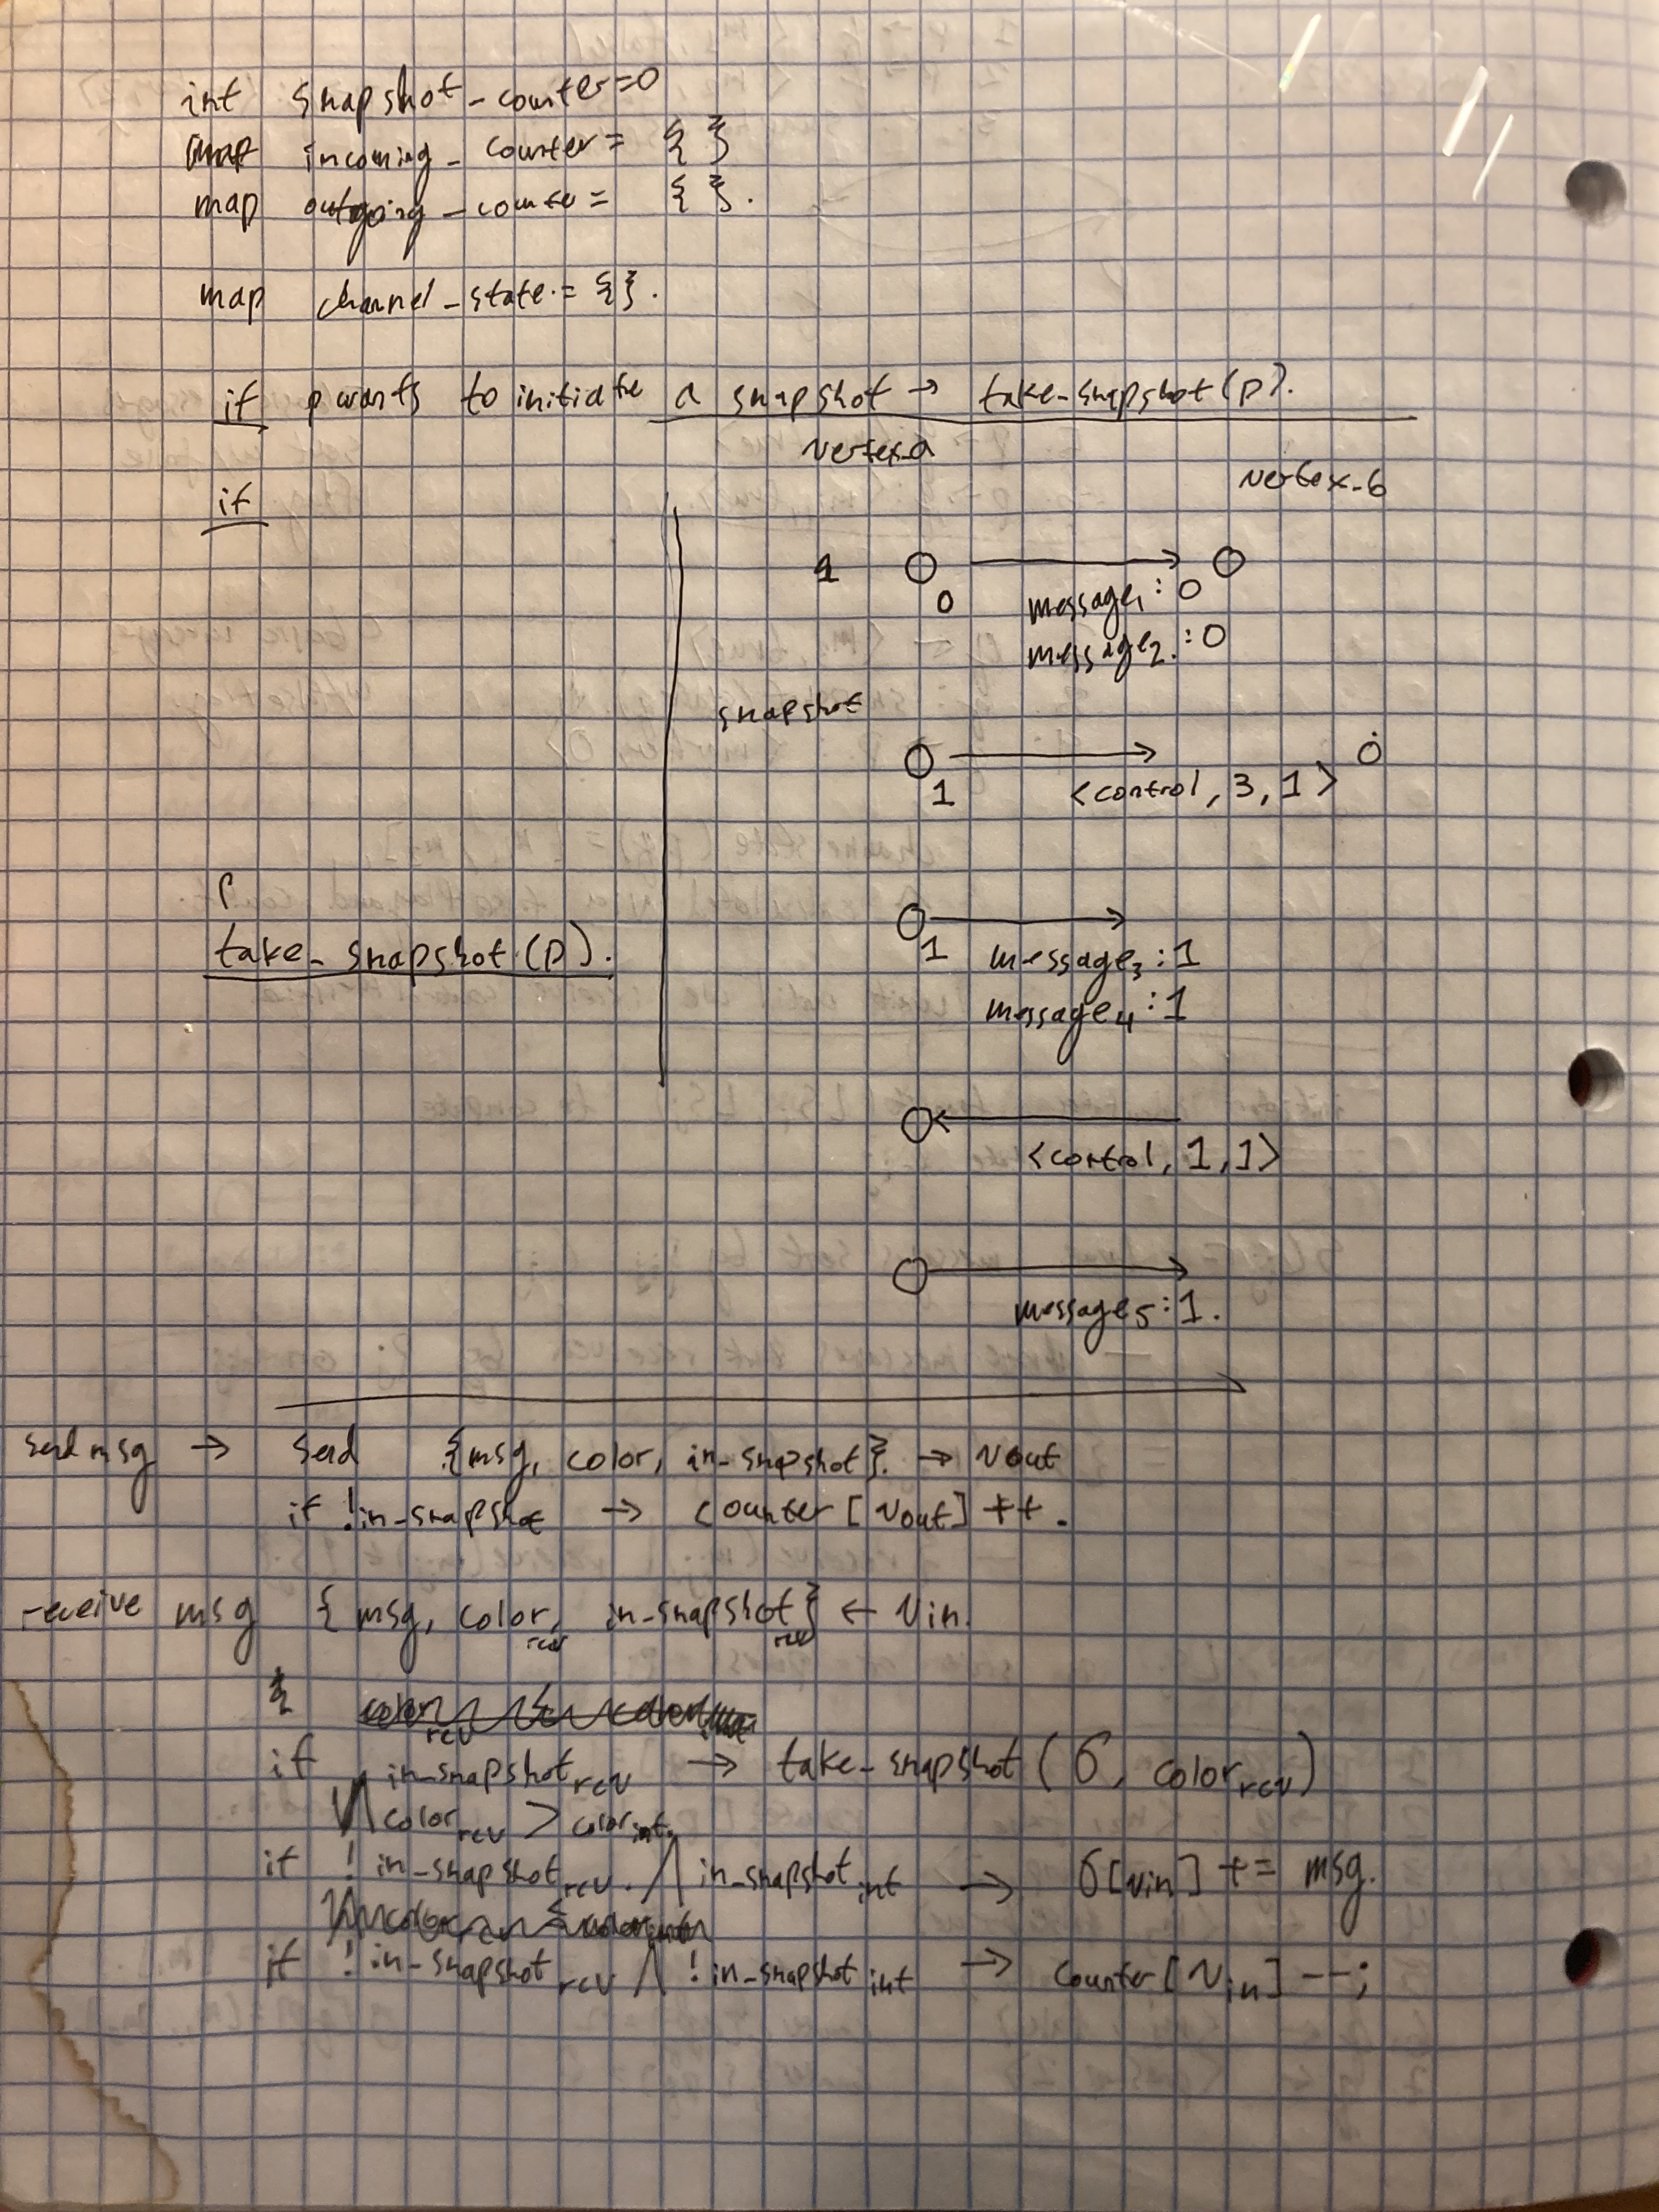 int snapshot_counter=0
map incoming_counter= { }
map outgoing_counte = { }.
map channel_state = {}.
if p wants to initiate a snapshot → take_snapshot(p).
vertex_a
vertex_b
if
1 0 message1 : 0
message2. : 0
snapshot
1 <control, 3, 1>
take_snapshot(p).
1 message3 : 1
message4 : 1
<control, 1, 1>
message5 : 1.
send msg → send {msg, color, in_snapshot}. → vout
if !in_snapshot → counter [vout] ++.
receive msg { msg, color rcv, in_snapshot rcv} ← vin.
if in_snapshot rcv → take_snapshot (σ, color rcv)
∧ color rcv > color int.
if ! in_snapshot rcv. ∧ in_snapshot int → σ[vin] += msg.
if ! in_snapshot rcv ∧ ! in_snapshot int → counter [vin] --;